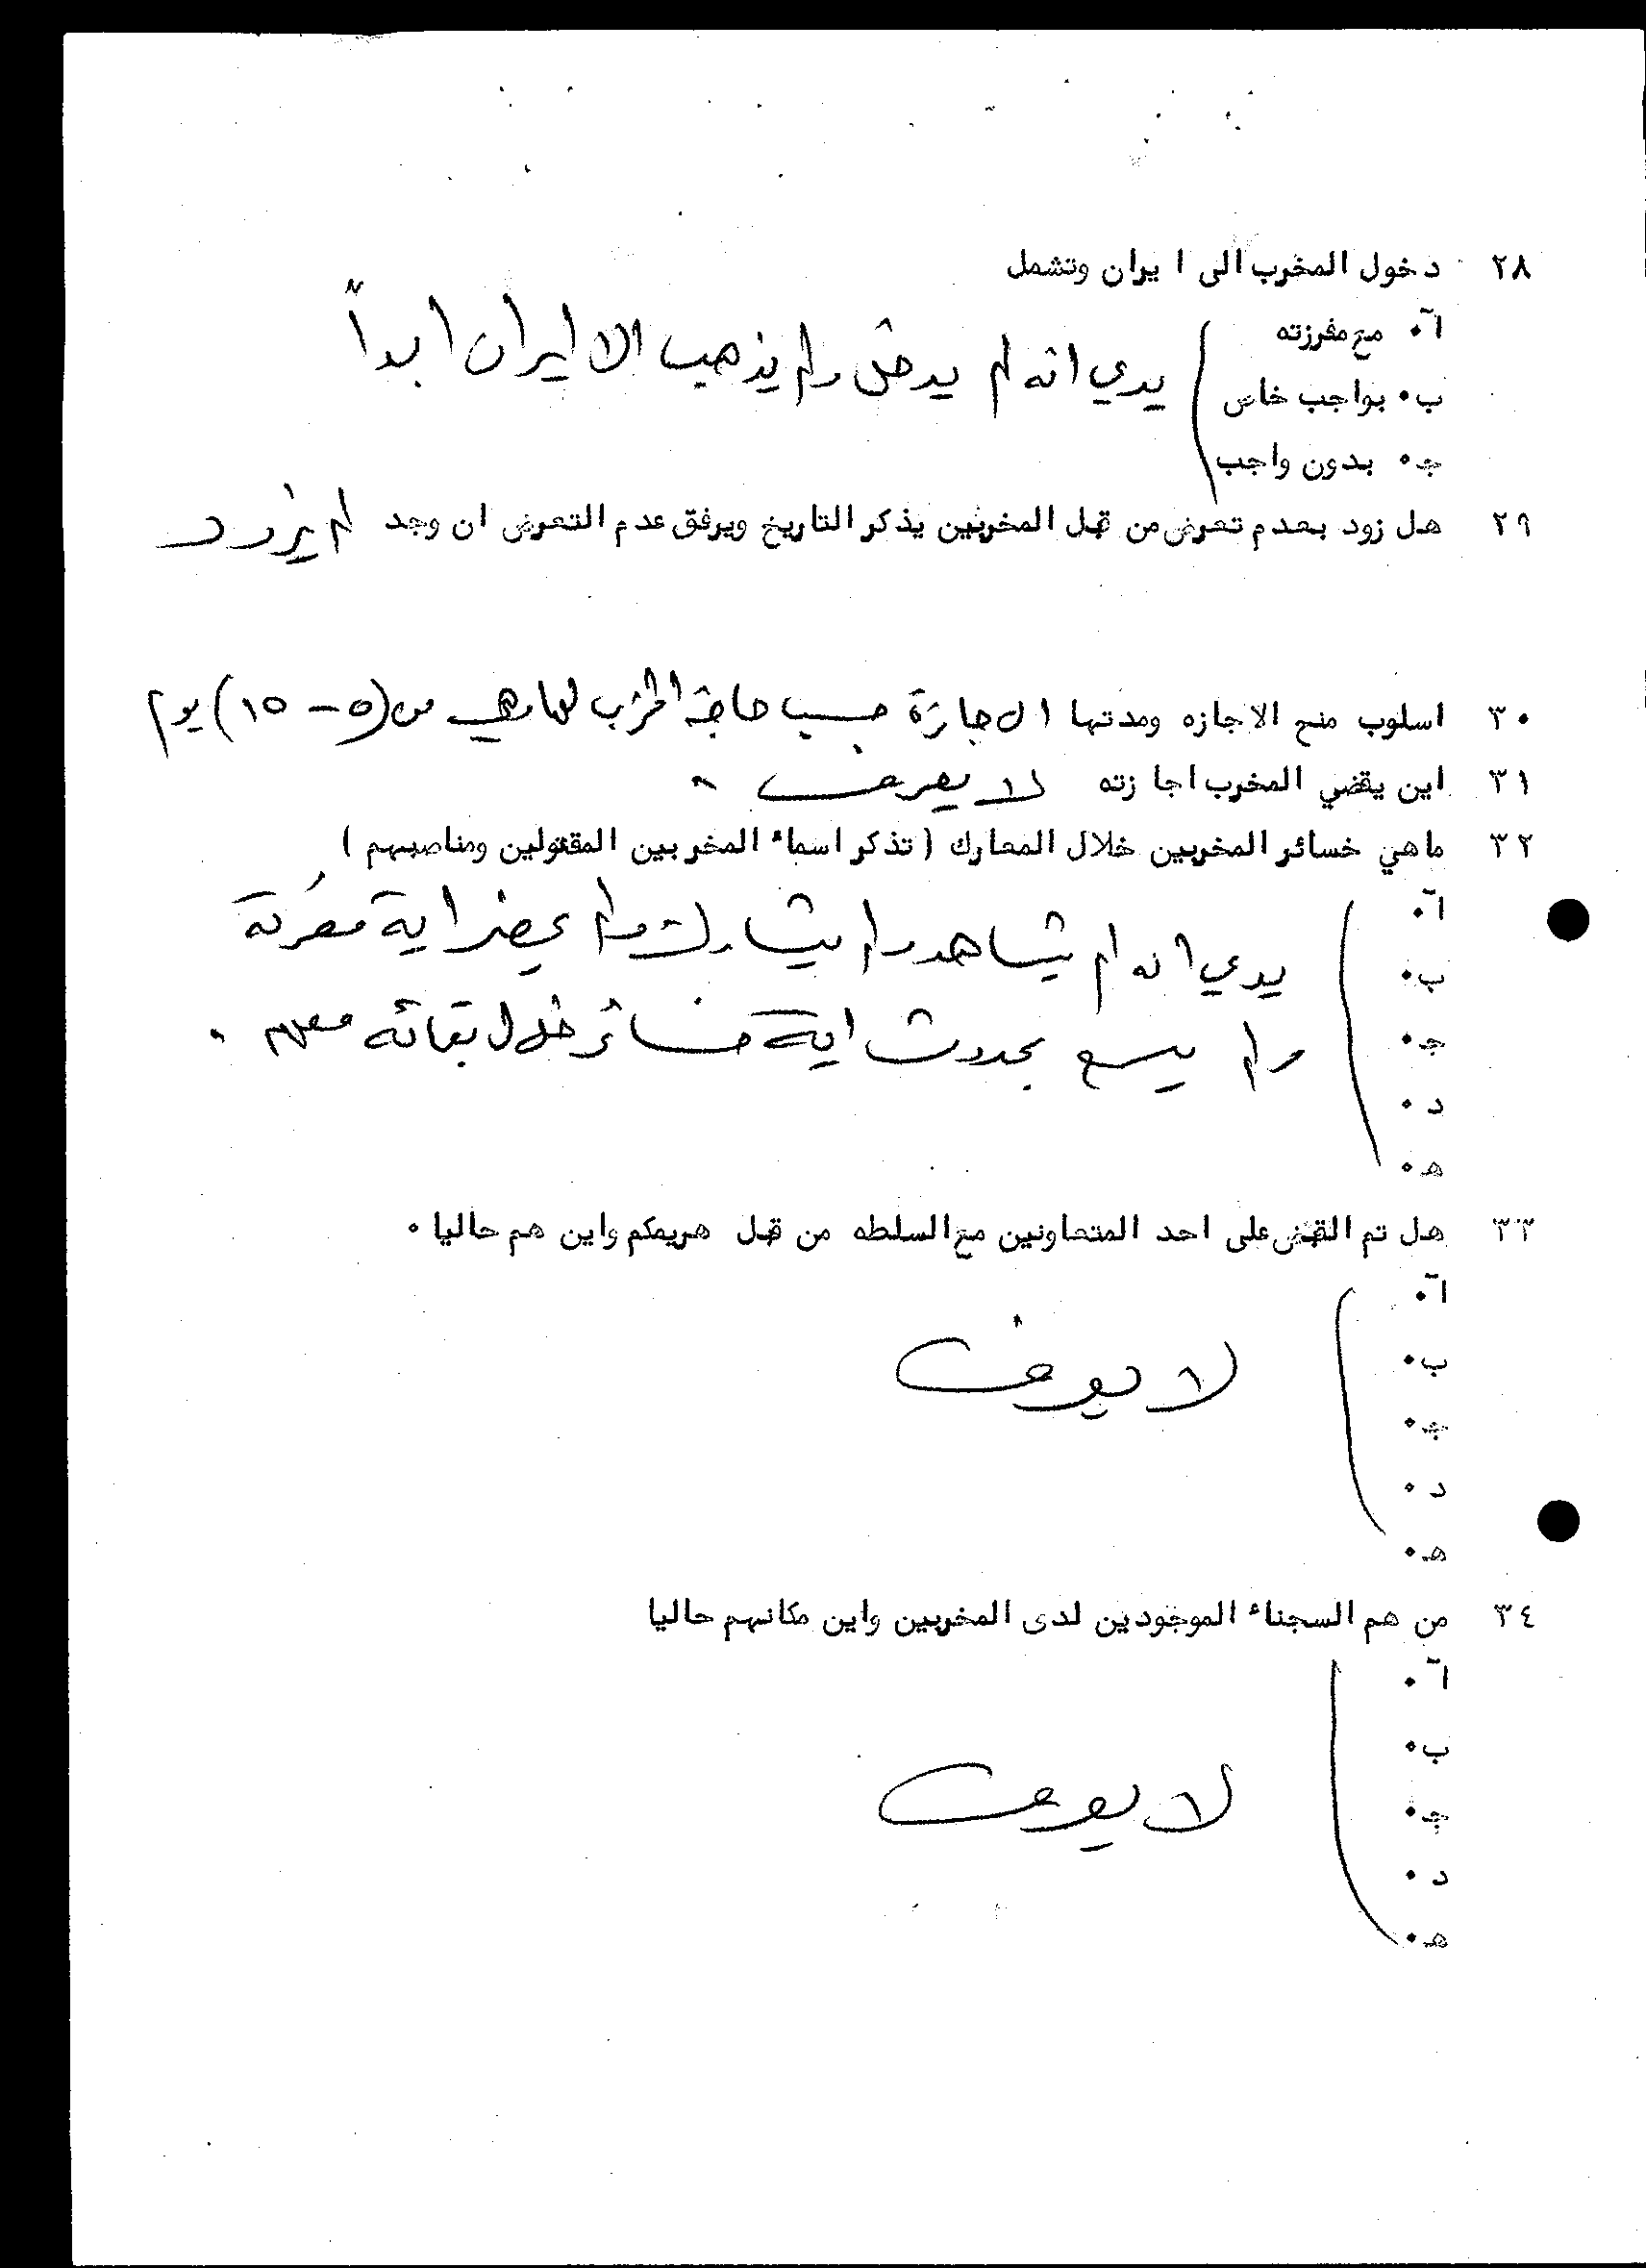 ٢٨ دخول المخرب الى ايران وتشمل
آ٠ مع مفرزته
يدعي انه لم يدخل ولم يذهب الى ايران ابداً
ب٠ بواجب خاص
جـ٠ بدون واجب
٢٩ هل زود بعدم تعرض من قبل المخربين يذكر التاريخ ويرفق عدم التعرض ان وجد لم يزود
٣٠ اسلوب منح الاجازه ومدتها الاجازة حسب حاجة الحزب وهي من (٥ - ١٥) يوم
٣١ اين يقضي المخرب اجازته لا يعرف ٠
٣٢ ماهي خسائر المخربين خلال المعارك (تذكر اسماء المخربين المقتولين ومناصبهم)
آ٠
يدعي انه لم يشاهد ولم يشارك ولم يحضر اية معركة
ب٠
ولم يسمع بحدوث اية خسائر خلال بقائه معهم ٠
جـ٠
د٠
هـ٠
٣٣ هل تم القبض على احد المتعاونين مع السلطه من قبل هريمكم واين هم حاليا ٠
آ٠
ب٠
لا يعرف
جـ٠
د٠
هـ٠
٣٤ من هم السجناء الموجودين لدى المخربين واين مكانهم حاليا
آ٠
ب٠
لا يعرف
جـ٠
د٠
هـ٠